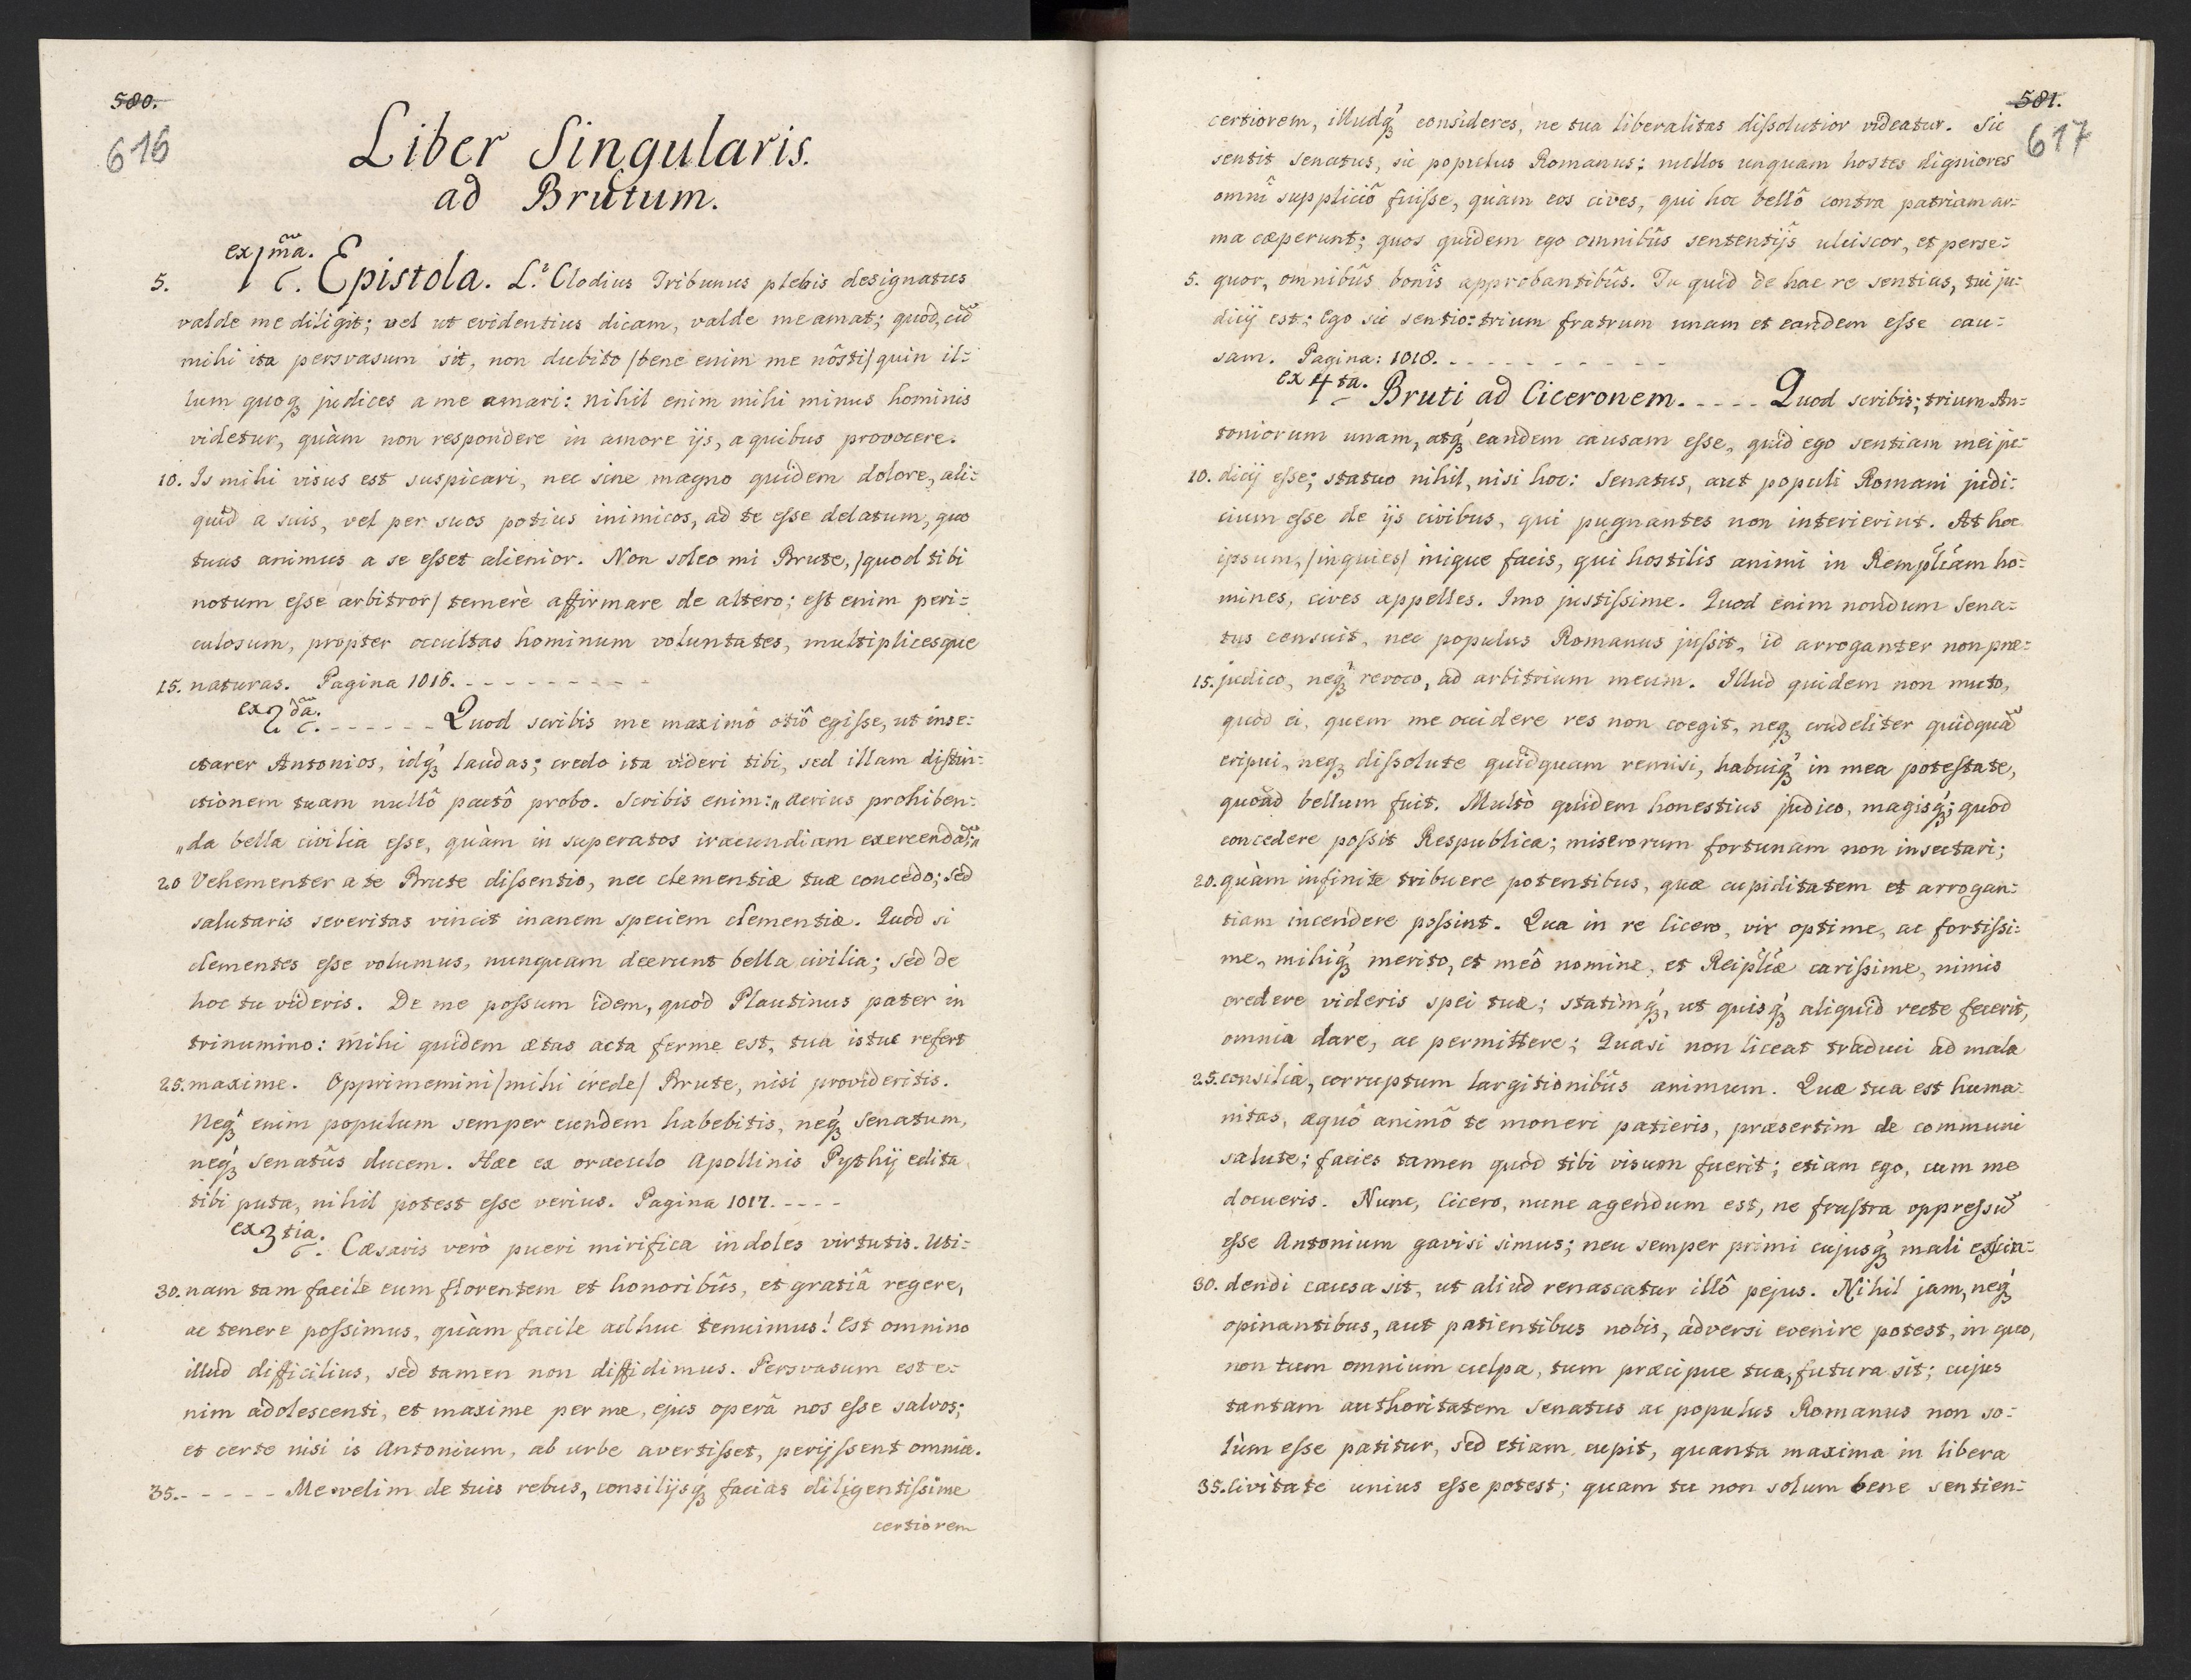 580.
616
Liber Singularis.
ad Brutum.
ex 1mã.
5. Epistola. L. Clodius Tribunus plebis designatus
valde me diligit; vel ut evidentius dicam, valde me amat; quod, cũ
mihi ita persvasum sit, non dubito /bene enim me nôsti/ quin il=
lum quoq; judices a me amari: nihil enim mihi minus hominis
videtur, quàm non respondere in amore ijs, a quibus provocere.
10. Is mihi visus est suspicari, nec sine magno quidem dolore, ali=
quid a suis, vel per suos potius inimicos, ad te eſse delatum, quo
tuus animus a se eſset alienior. Non soleo mi Brute, /quod tibi
notum eſse arbitror/ temerè affirmare de altero; eſt enim peri=
culosum, propter occultas hominum voluntates, multiplicesque
15. naturas. Pagina 1016. - - - - - - - - -
ex 2dã. - - - - - - Quod scribis me maximô otiô egiſse, ut inse=
ctarer Antonios, idq́; laudas; credo ita videri tibi, sed illam diſtin=
ctionem tuam nullô pactô probo. Scribis enim: „ Acrius prohiben=
„da bella civilia eſse, quàm in superatos iracundiam exercendã:"
20 Vehementer a te Brute diſsentio, nec clementiæ tuæ concedo; sed
salutaris severitas vincit inanem speciem clementiæ. Quod si
clementes eſse volumus, nunquam deerunt bella civilia; sed de
hoc tu videris. De me poſsum idem, quod Plautinus pater in
trinummo: Mihi quidem ætas acta ferme est, tua istuc refert
25. maxime. Opprimemini /mihi crede/ Brute, nisi provideritis.
Neq́; enim populum semper eundem habebitis, neq́; Senatum,
neq́; senatûs ducem. Hæc ex oraculo Apollinis Pythij edita
tibi puta, nihil potest eſse verius. Pagina 1017. - - - -
ex 3tia. Cæsaris verò pueri mirifica indoles virtutis. Uti=
30. nam tam facile eum florentem et honoribûs, et gratiâ regere,
ac tenere poſsimus, quàm facile adhuc tenuimus! Est omnino
illud difficilius, sed tamen non diffidimus. Persvasum est e=
nim adolescenti, et maxime per me, ejus operâ nos eſse salvos;
et certe nisi is Antonium, ab urbe avertiſset, perijſsent omnia.
35. - - - - - Me velim de tuis rebus, consilijsq́; facias diligentiſsime
certiorem
581.
617
certiorem, illudq́; consideres, ne tua liberalitas diſsolutior videatur. Sic
sentit Senatus, sic populus Romanus: nullos unquam hostes digniores
omnî suppliciô fuiſse, quàm eos cives, qui hoc bellô contra patriam ar=
ma cæperunt; quos quidem ego omnibûs sententijs ulciscor, et perse=
5. quor, omnibûs bonîs approbantibûs. Tu quid de hac re sentias, tui ju=
dicij est; Ego sic sentio: trium fratrum unam et eandem eſse cau=
sam. Pagina: 1018. - - - - - - - - - - -
ex 4ta. Bruti ad Ciceronem. - - - - - Quod scribis; trium An=
toniorum unam, atq́; eandem causam eſse, quid ego sentiam mei ju=
10. dicij eſse; statuo nihil, nisi hoc: Senatus, aut populi Romani judi=
cium eſse de ijs civibus, qui pugnantes non interierint. At hoc
ipsum, /inquies/ inique facis, qui hostilis animi in Rempl̃cam ho=
mines, cives appelles. Imo justiſsime. Quod enim nondum Sena=
tus censuit, nec populus Romanus juſsit, id arroganter non præ=
15. judico, neq́; revoco, ad arbitrium meum. Illud quidem non muto,
quod ei, quem me occidere res non coegit, neq; crudeliter quidquã
eripui, neq; diſsolute quidquam remisi, habuiq́; in mea poteſtate,
quoad bellum fuit. Multò quidem honestius judico, magisq́; quod
concedere poſsit Respublica; miserorum fortunam non insectari;
20. quàm infinite tribuere potentibus, quæ cupiditatem et arrogan=
tiam incendere poſsint. Qua in re Cicero, vir optime, ac fortiſsi=
me, mihiq́; merito, et meô nomine, et Reipl̃cæ cariſsime, nimis
credere videris spei tuæ; statimq́;, ut quisq́; aliquid recte fecerit,
omnia dare, ac permittere; Quasi non liceat traduci ad mala
25. consilia, corruptum largitionibûs animum. Quæ tua est huma=
nitas, æquô animô te moneri patieris, præsertim de communi
salute; facies tamen quod tibi visum fuerit; etiam ego, cum me
docueris. Nunc, Cicero, nunc agendum est, ne fruſtra oppreſsũ
eſse Antonium gavisi simus; neu semper primi cujusq́; mali exſcin=
30. dendi causa sit, ut aliud renascatur illô pejus. Nihil jam, neq́;
opinantibus, aut patientibus nobis, adversi evenire potest, in quo,
non tum omnium culpa, tum præcipue tua, futura sit; cujus
tantam authoritatem Senatus ac populus Romanus non so=
lùm eſse patitur, sed etiam cupit, quanta maxima in libera
35. Civitate unius eſse potest; quam tu non solum bene sentien=